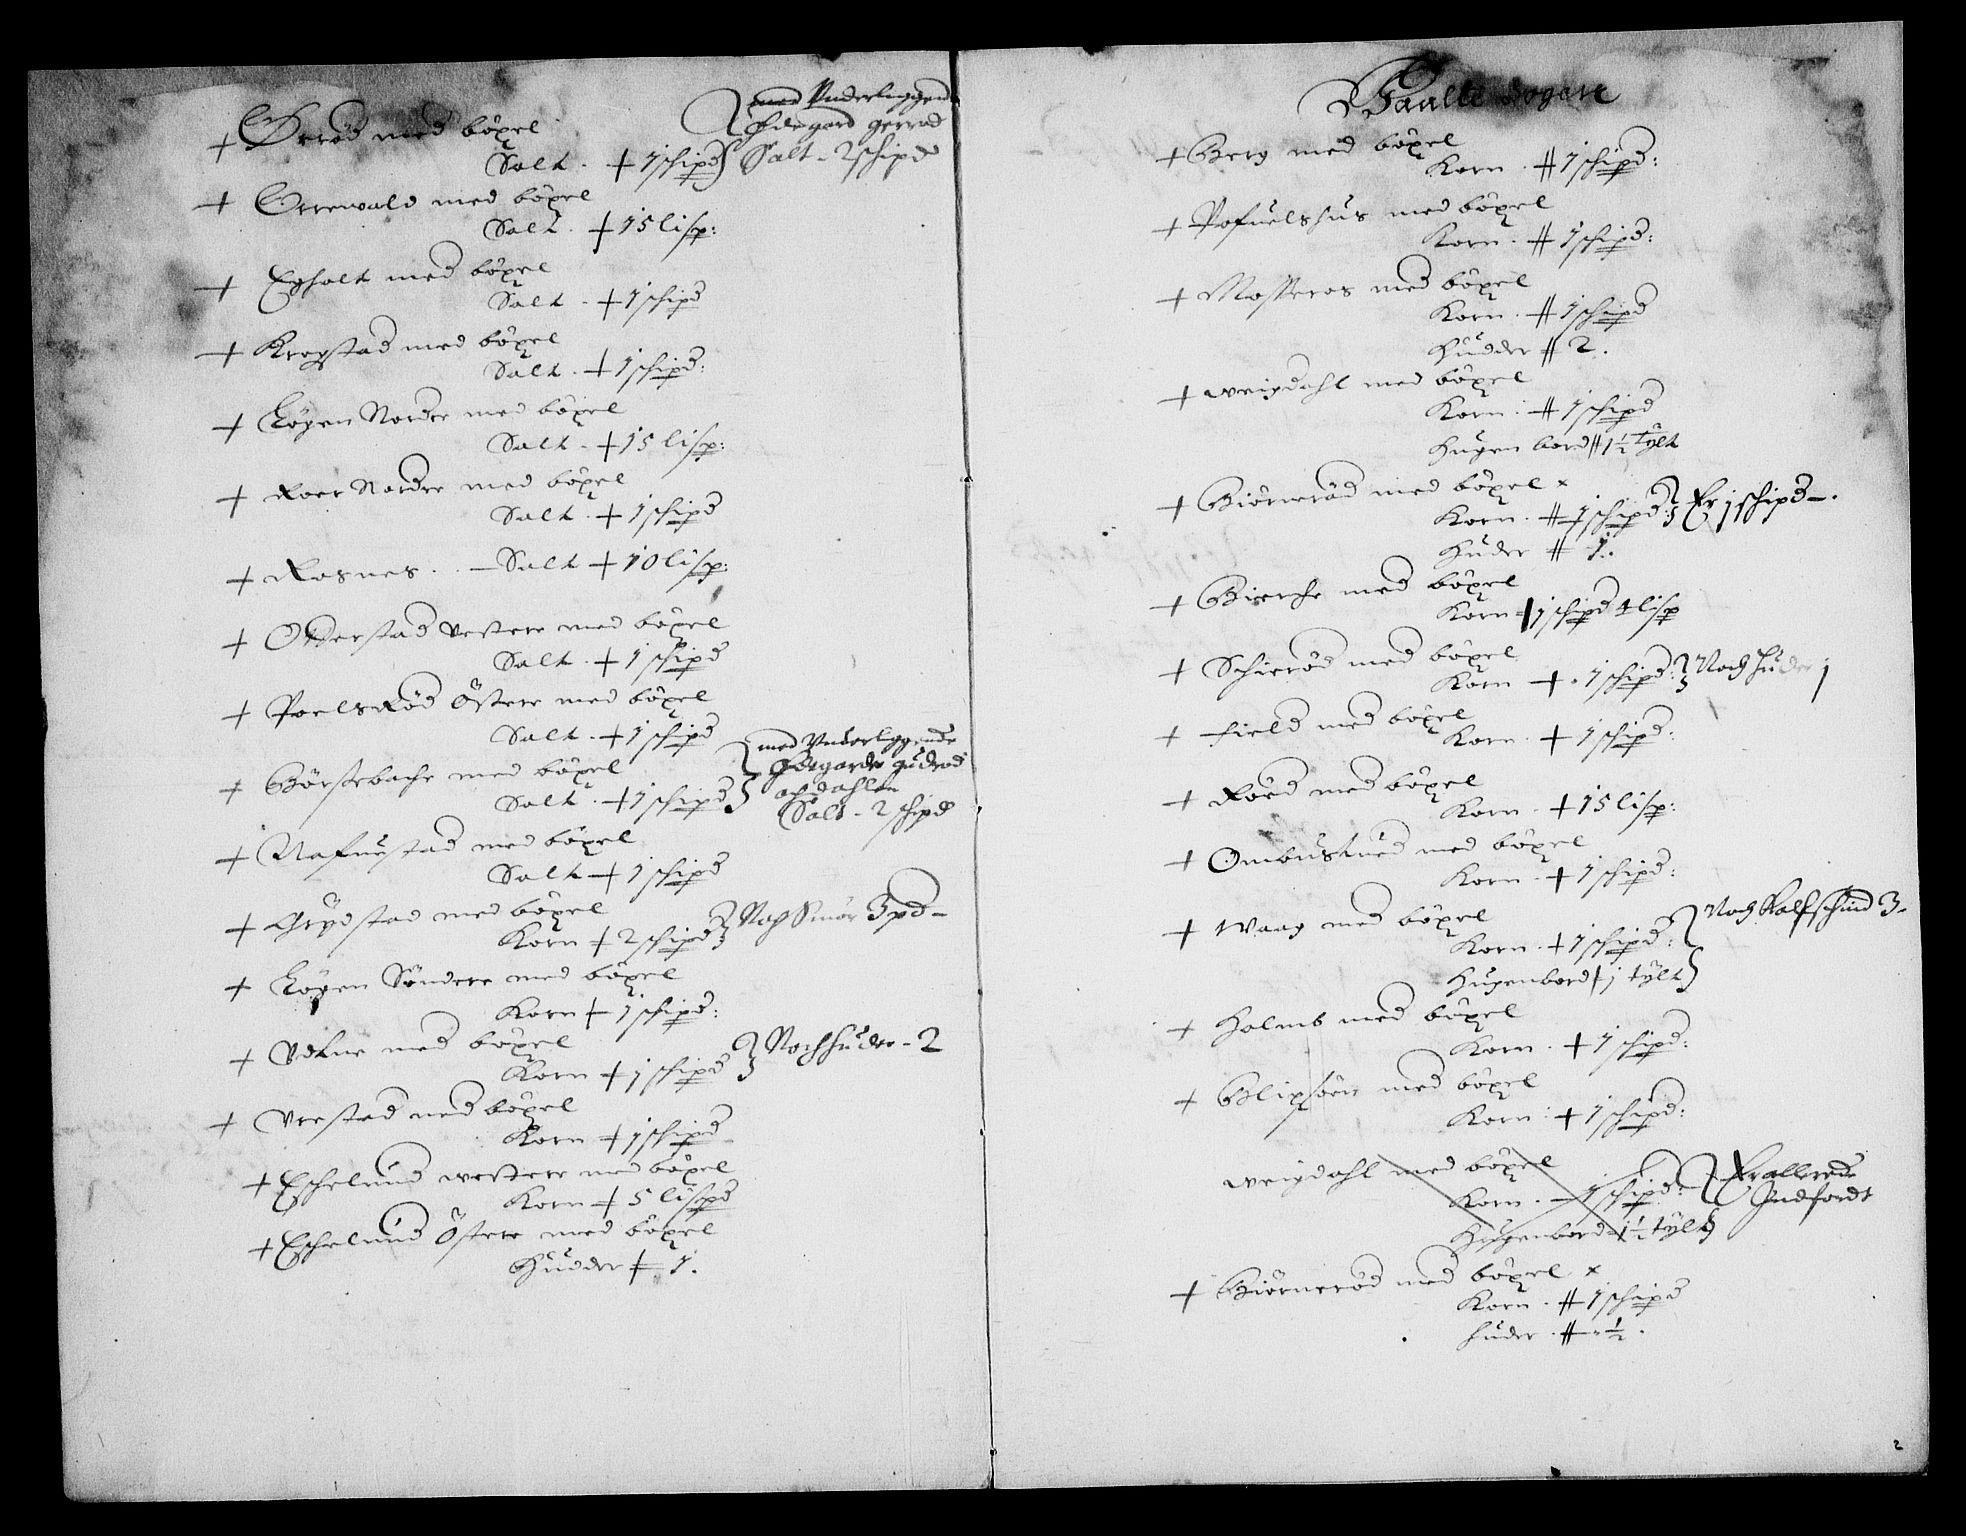 + Ørrød med böxel
Salt - + 1 schipd } { med Underliggend
Ødegard gerrød
Salt - 2 schipd
+ Orrewald med böxel
Salt + 15 lisp:
+ Egholt med böxel
Salt - + 1 schipd
+ Krogstad med böxel
Salt - + 1 schipd:
+ Løgen Nordre med böxel
Salt - + 15 lisp:
+ Roer Nordre med böxel
Salt - + 1 schipd
+ Rosnes . . — Salt + 10 lisp:
+ Otterstad Vestere med böxel
Salt - + 1 schipd
+ Poelsrød Östere med böxel
Salt - + 1 schipd
+ Börstebache med böxel
Salt - + 1 schipd } { med Underliggende
Ödegarde gudrød
och dahlen
Salt - 2 schipd
+ Nafnestad med böxel
Salt + 1 schipd
+ Grydstad med böxel
Korn + 2 schipd } Noch Smör 3 pd -
+ Løgen Söndere med böxel
Korn + 1 schipd:
+ Udkne med böxel
Korn + 1 schipd } Noch huder - 2
+ Vrestad med böxel
Korn + 1 schipd
+ Eschelund westere med böxel
Korn + 5 lispd
+ Eschelund Östere med böxel
Hudder + 1.
Vaalle Sogen
+ Berg med böxel
Korn . # 1 schipd:
+ Pofuelshus med böxel
Korn . # 1 schipd:
+ Mosseros med böxel
Korn . # 1 schipd
Hudder # 2 .
+ weigdahl med böxel
Korn . # 1 schipd
Hugen bord # 1½ tylt
+ Biörnerød med böxel x
Korn . # 1 schipd } Er 1 schipd - .
Huder # 1.
+ Bierche med böxel
Korn + 1 schipd 4 lisp
+ Schierød med böxel
Korn + . 1 schipd: } Noch huder 1
+ field med böxel
Korn . + 1 schipd:
+ Röed med böxel
Korn . + 15 lisp:
+ Ombustued med böxel
Korn . + 1 schipd:
+ Waag med böxel
Korn . + 1 schipd: } Noch Kalfschind 3.
Hugenbord + 1 tylt }
+ Holmb med böxel
Korn . + 1 schipd:
+ Slipsöen med böxel
Korn . + 1 schipd:
weigdahl med böxel
Korn . - 1 schipd: } Er allerede
Indfordt
Hugenbord - 1½ tylt }
+ Biörnerød med böxel x
Korn . # 1 schipd
huder . # - ½ .
2